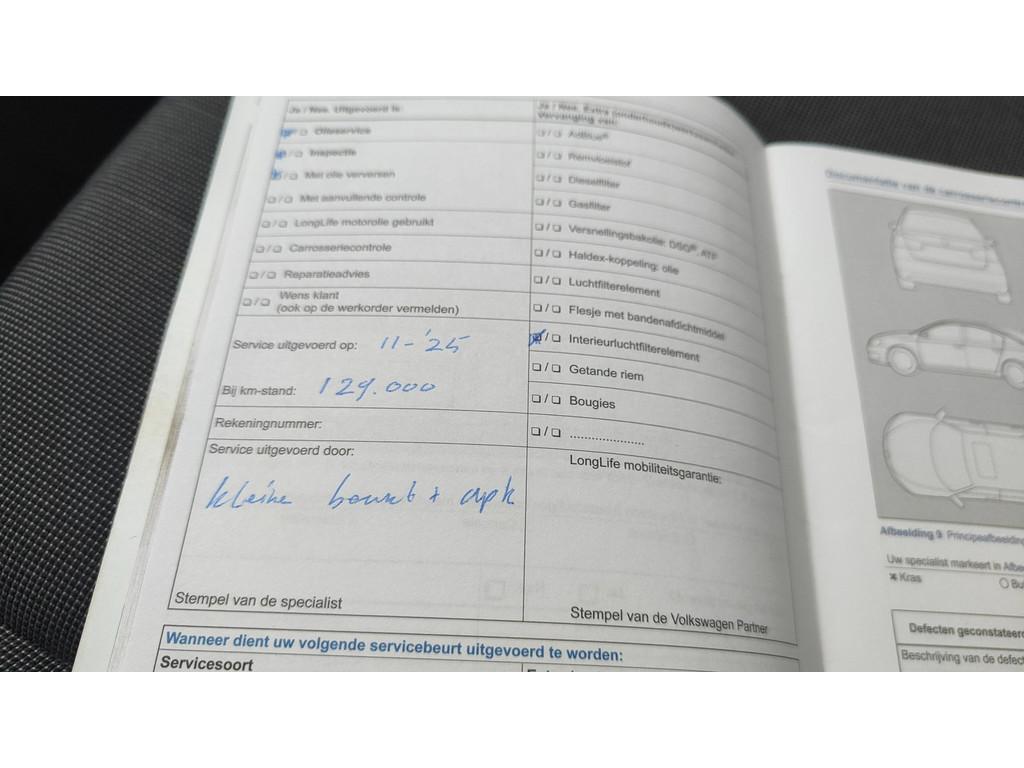 Ja / Nee. Uitgevoerd is:
☐ / ☐ Olieservice
☐ / ☐ Inspectie
☐ / ☐ Met olie verversen
☐ / ☐ Met aanvullende controle
☐ / ☐ LongLife motorolie gebruikt
☐ / ☐ Carrosseriecontrole
☐ / ☐ Reparatieadvies
☐ / ☐ Wens klant
(ook op de werkorder vermelden)
Service uitgevoerd op: 11-'25
Bij km-stand: 129.000
Rekeningnummer:
Service uitgevoerd door:
kleine beurt + apk
Stempel van de specialist
Ja / Nee. Extra
Vervanging van:
☐ / ☐ AdBlue®
☐ / ☐ Remvloeistof
☐ / ☐ Dieselfilter
☐ / ☐ Gasfilter
☐ / ☐ Versnellingsbakolie: DSG®, ATF
☐ / ☐ Haldex-koppeling: olie
☐ / ☐ Luchtfilterelement
☐ / ☐ Flesje met bandenafdichtmiddel
☒ / ☐ Interieurluchtfilterelement
☐ / ☐ Getande riem
☐ / ☐ Bougies
☐ / ☐ .....................
LongLife mobiliteitsgarantie:
Stempel van de Volkswagen Partner
Wanneer dient uw volgende servicebeurt uitgevoerd te worden:
Servicesoort
Documentatie van de
Afbeelding 9 Principeafbeelding
Uw specialist markeert in Afbe
× Kras
○ Bu
Defecten geconstateerd
Beschrijving van de defect